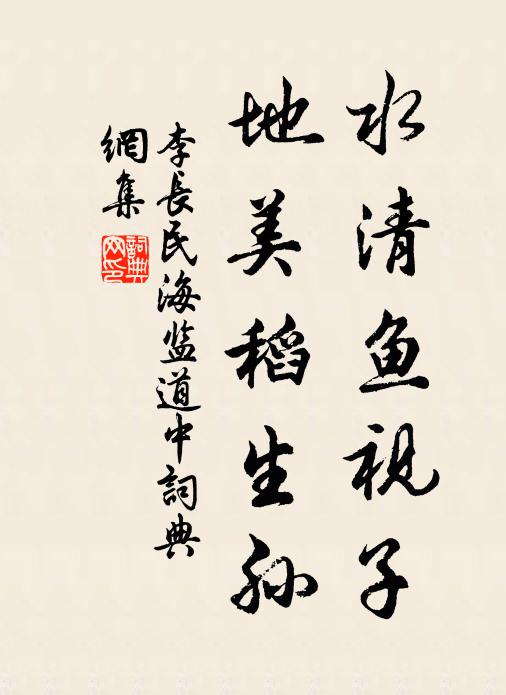 水清鱼视子
地美稻生孙
李長民海监道中詞典
網集
詞典網印